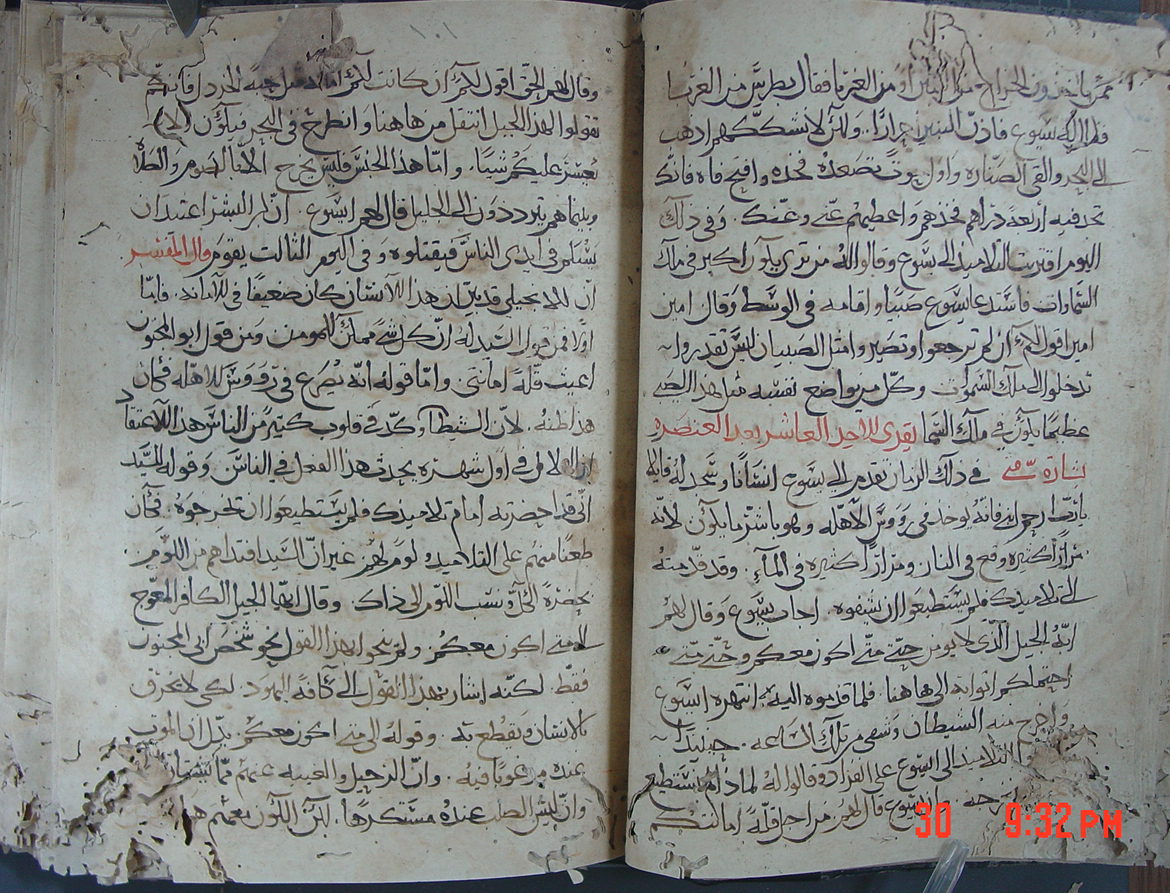 ممن ياخذون الخراج من البنين او من الغربا فقال بطرس من الغربا
فقال له يسوع فاذن البنين احرارًا. ولكن لا نشككهم اذهب
الى البحر والقي الصناره واول حوت تصعده فخده وافتح فاه فانك
تجد فيه اربعه دراهم فخذهم واعطيهم عني وعنك. وفي ذالك
اليوم اقتربت التلاميذ الى يسوع وقالوا له من ترى يكون اكبر في ملك
السماوات فاستدعا يسوع صبيا واقامه في الوسط وقال امين
امين اقول لكم ان لم ترجعوا وتصيروا مثل الصبيان ليس تقدروا
تدخلوا الى ملك السموات وكل من يواضع نفسه مثل هدا الصبي
عظيما يكون في ملك السما يقرى للاحد العاشر بعد العنصره
بشارة متى في ذلك الزمان تقدم الى يسوع انسانا وسجد له قايلا
يارب ارحم ابني فانه يوجد في رووس الاهله وهو باشر ما يكون لانه
مرارًا كثيره وقع في النار ومرارًا كثيره في المآء. وقد قدمته
الى تلاميدك فلم يستطيعوا ان يشفوه. اجاب يسوع وقال لهم
ايها الجيل الذي لا يومن حتى متى اكون معكم وحتى متى
احتملكم اتوا به الى هاهنا. فلما قدموه اليه انتهره ايسوع
واخرج منه الشيطان وشفي من تلك الساعه. حينيد
التلاميد الى يسوع على انفراد وقالوا له لماد لم نستطيع
يسوع قال لهم من اجل قلة امانتكم
١٠١
وقال لهم الحق اقول لكم ان كانت لكم امانه مثل حبة الخردل فانكم
تقولوا لهذا الجبل انتقل من هاهنا وانطرح في البحر فيكون ولا
يعسر عليكم شيًا. واما هذا الجنس فليس يخرج الا بالصوم والصلاه
وبينما هم يترددون الى الجليل قال لهم ايسوع. ان ابن البشر اعتيدان
يسلم في ايدي الناس فيقتلوه وفي اليوم الثالت يقوم قال المفسر
ان الانجيلي قد بين ان هذا الانسان كان ضعيفًا في الامانه. فاما
اولًا فمن قول السيد له ان كل شي ممكن للمومن ومن قول ابو المجنون
اعين قلة امانتي واما قوله انه يصرع في رووس الاهله فكان
هذا ظنه. لان الشيطان وكد في قلوب كتير من الناس هذا الاعتقاد
ان الهلال في اول شهره يحدت هذا الفعل في الناس وقوله للسيد
اني قد احضرته امام تلاميدك فلم يستطيعوا ان يخرجوه. فكان
طعنًا منهم على التلاميد ولوم لهم غير ان السيد افتداهم من اللوم
بحضرة الكل ونسب اللوم الى ذاك وقال ايها الجيل الكافر المعوج
الى متى اكون معكم ولم ينحوا بهدا القول نحو شخص ابي المجنون
فقط. لكنه اشار بهدا القول الى كافة اليهود. لكي لا يحترق
بالانسان ويقطع به. وقوله الى متى اكون معكم. يدل ان الموت
عنده مرغوبا فيه. وان الرحيل والغيبه عنهم مما يشتهيه
وان ليس الصلب عنده مستكرهًا. لكن الكون معهم هو
30 9:32 PM